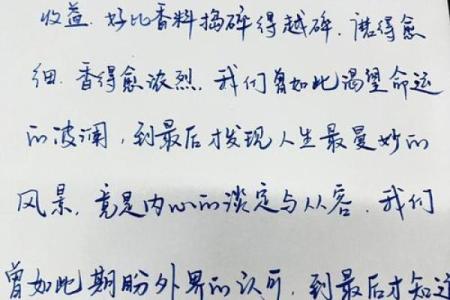 收益.好比香料捣碎得越碎.磨得愈
细.香得愈浓烈.我们曾如此渴望命运
的波澜,到最后才发现人生最曼妙的
风景,竟是内心的淡定与从容.我们
曾如此期盼外界的认可,到最后才知道